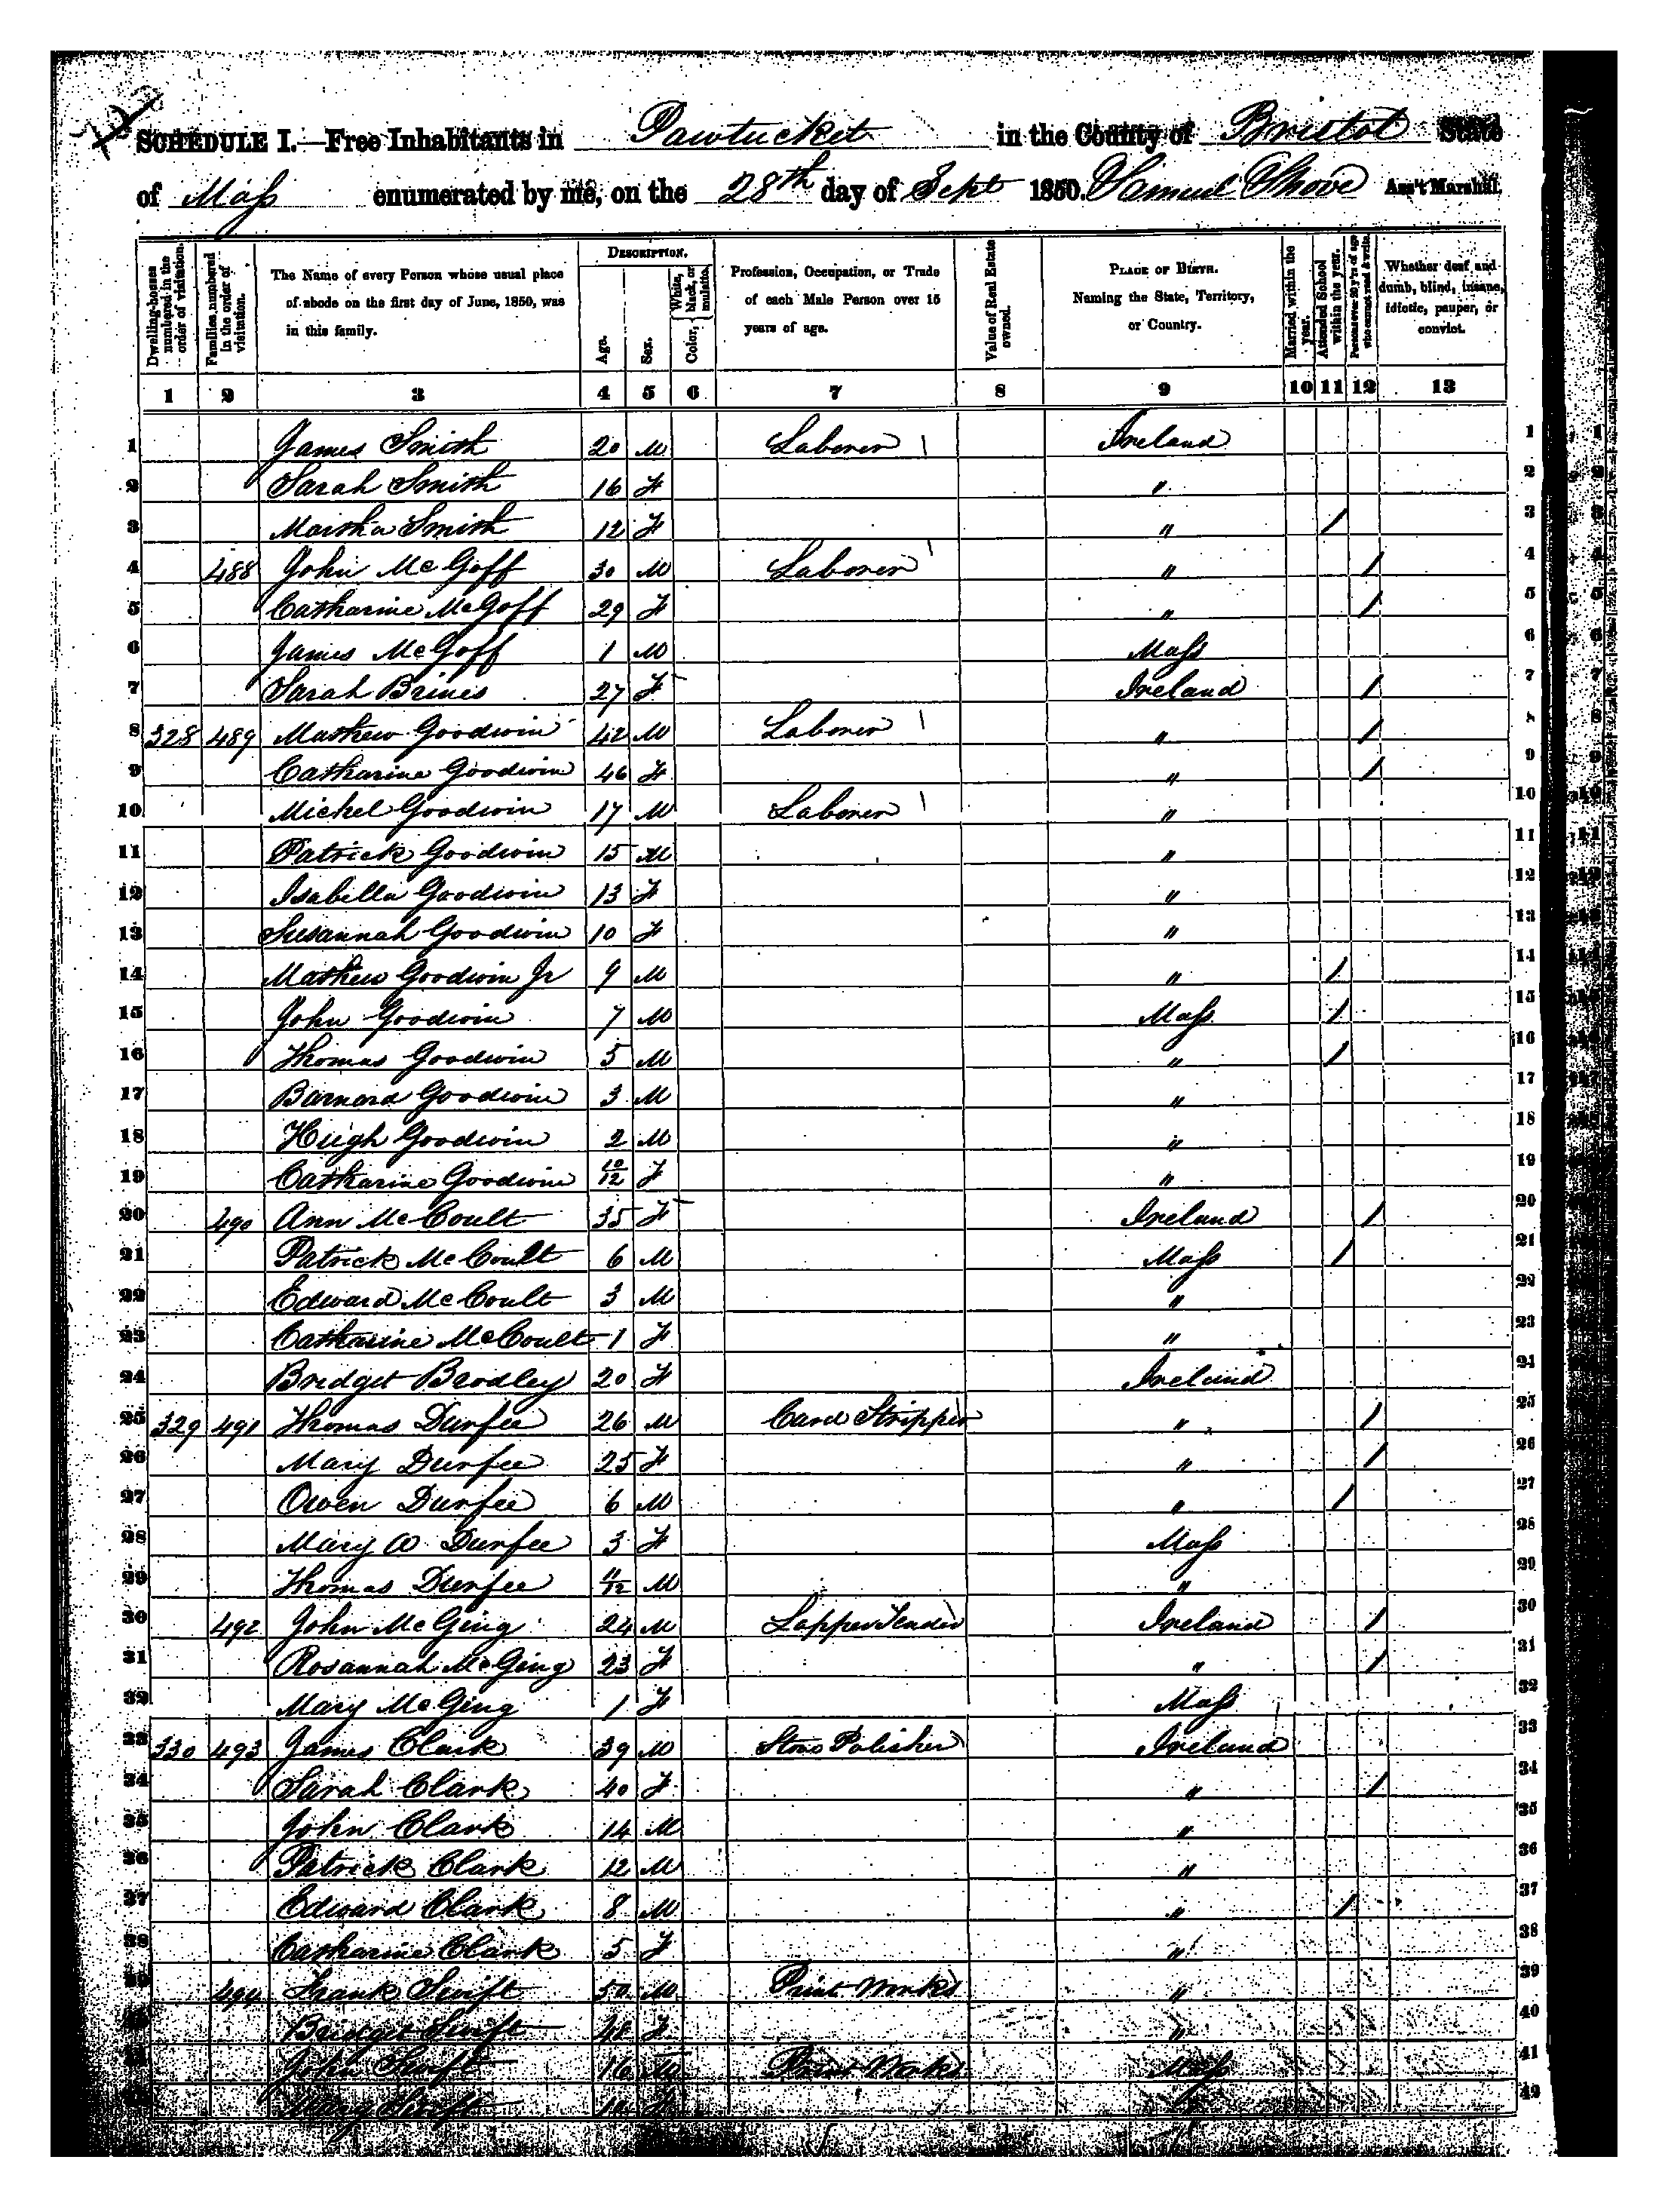 SCHEDULE I.—Free Inhabitants in Pawtucket in the County of Bristol State
of Mass enumerated by me, on the 28th day of Sept 1850. Samuel Shove Ass't Marshal.
Dwelling-houses numbered in the order of visitation.
Families numbered in the order of visitation.
The Name of every Person whose usual place of abode on the first day of June, 1850, was in this family.
DESCRIPTION.
Age.
Sex.
Color, White, black, or mulatto.
Profession, Occupation, or Trade of each Male Person over 15 years of age.
Value of Real Estate owned.
PLACE OF BIRTH. Naming the State, Territory, or Country.
Married within the year.
Attended School within the year.
Persons over 20 y'rs of age who cannot read & write.
Whether deaf and dumb, blind, insane, idiotic, pauper, or convict.
1 2 3 4 5 6 7 8 9 10 11 12 13
1 James Smith 20 M Laborer Ireland 1
2 Sarah Smith 16 F " 2
3 Martha Smith 12 F " / 3
4 488 John McGoff 30 M Laborer " / 4
5 Catharine McGoff 29 F " / 5
6 James McGoff 1 M Mass 6
7 Sarah Brines 27 F Ireland / 7
8 328 489 Mathew Goodwin 42 M Laborer " / 8
9 Catharine Goodwin 46 F " / 9
10 Mickel Goodwin 17 M Laborer " 10
11 Patrick Goodwin 15 M " 11
12 Isabella Goodwin 13 F " 12
13 Susannah Goodwin 10 F " 13
14 Mathew Goodwin Jr 9 M " / 14
15 John Goodwin 7 M Mass / 15
16 Thomas Goodwin 5 M " / 16
17 Barnard Goodwin 3 M " 17
18 Hugh Goodwin 2 M " 18
19 Catharine Goodwin 10/12 F " 19
20 490 Ann McCoult 35 F Ireland / 20
21 Patrick McCoult 6 M Mass / 21
22 Edward McCoult 3 M " 22
23 Catharine McCoult 1 F " 23
24 Bridget Bradley 20 F Ireland 24
25 329 491 Thomas Durfee 26 M Card Stripper " / 25
26 Mary Durfee 25 F " / 26
27 Owen Durfee 6 M " / 27
28 Mary A Durfee 3 F Mass 28
29 Thomas Durfee 11/12 M " 29
30 492 John McGing 24 M Lapper Tender Ireland / 30
31 Rosannah McGing 23 F " / 31
32 Mary McGing 1 F Mass 32
33 330 493 James Clark 39 M Stove Polisher Ireland 33
34 Sarah Clark 40 F " / 34
35 John Clark 14 M " 35
36 Patrick Clark 12 M " 36
37 Edward Clark 8 M " / 37
38 Catharine Clark 5 F " 38
39 494 Frank Swift 50 M Print Works " 39
40 Bridget Swift 48 F " 40
41 John Swift 16 M Print Works Mass 41
Mary Swift F 42